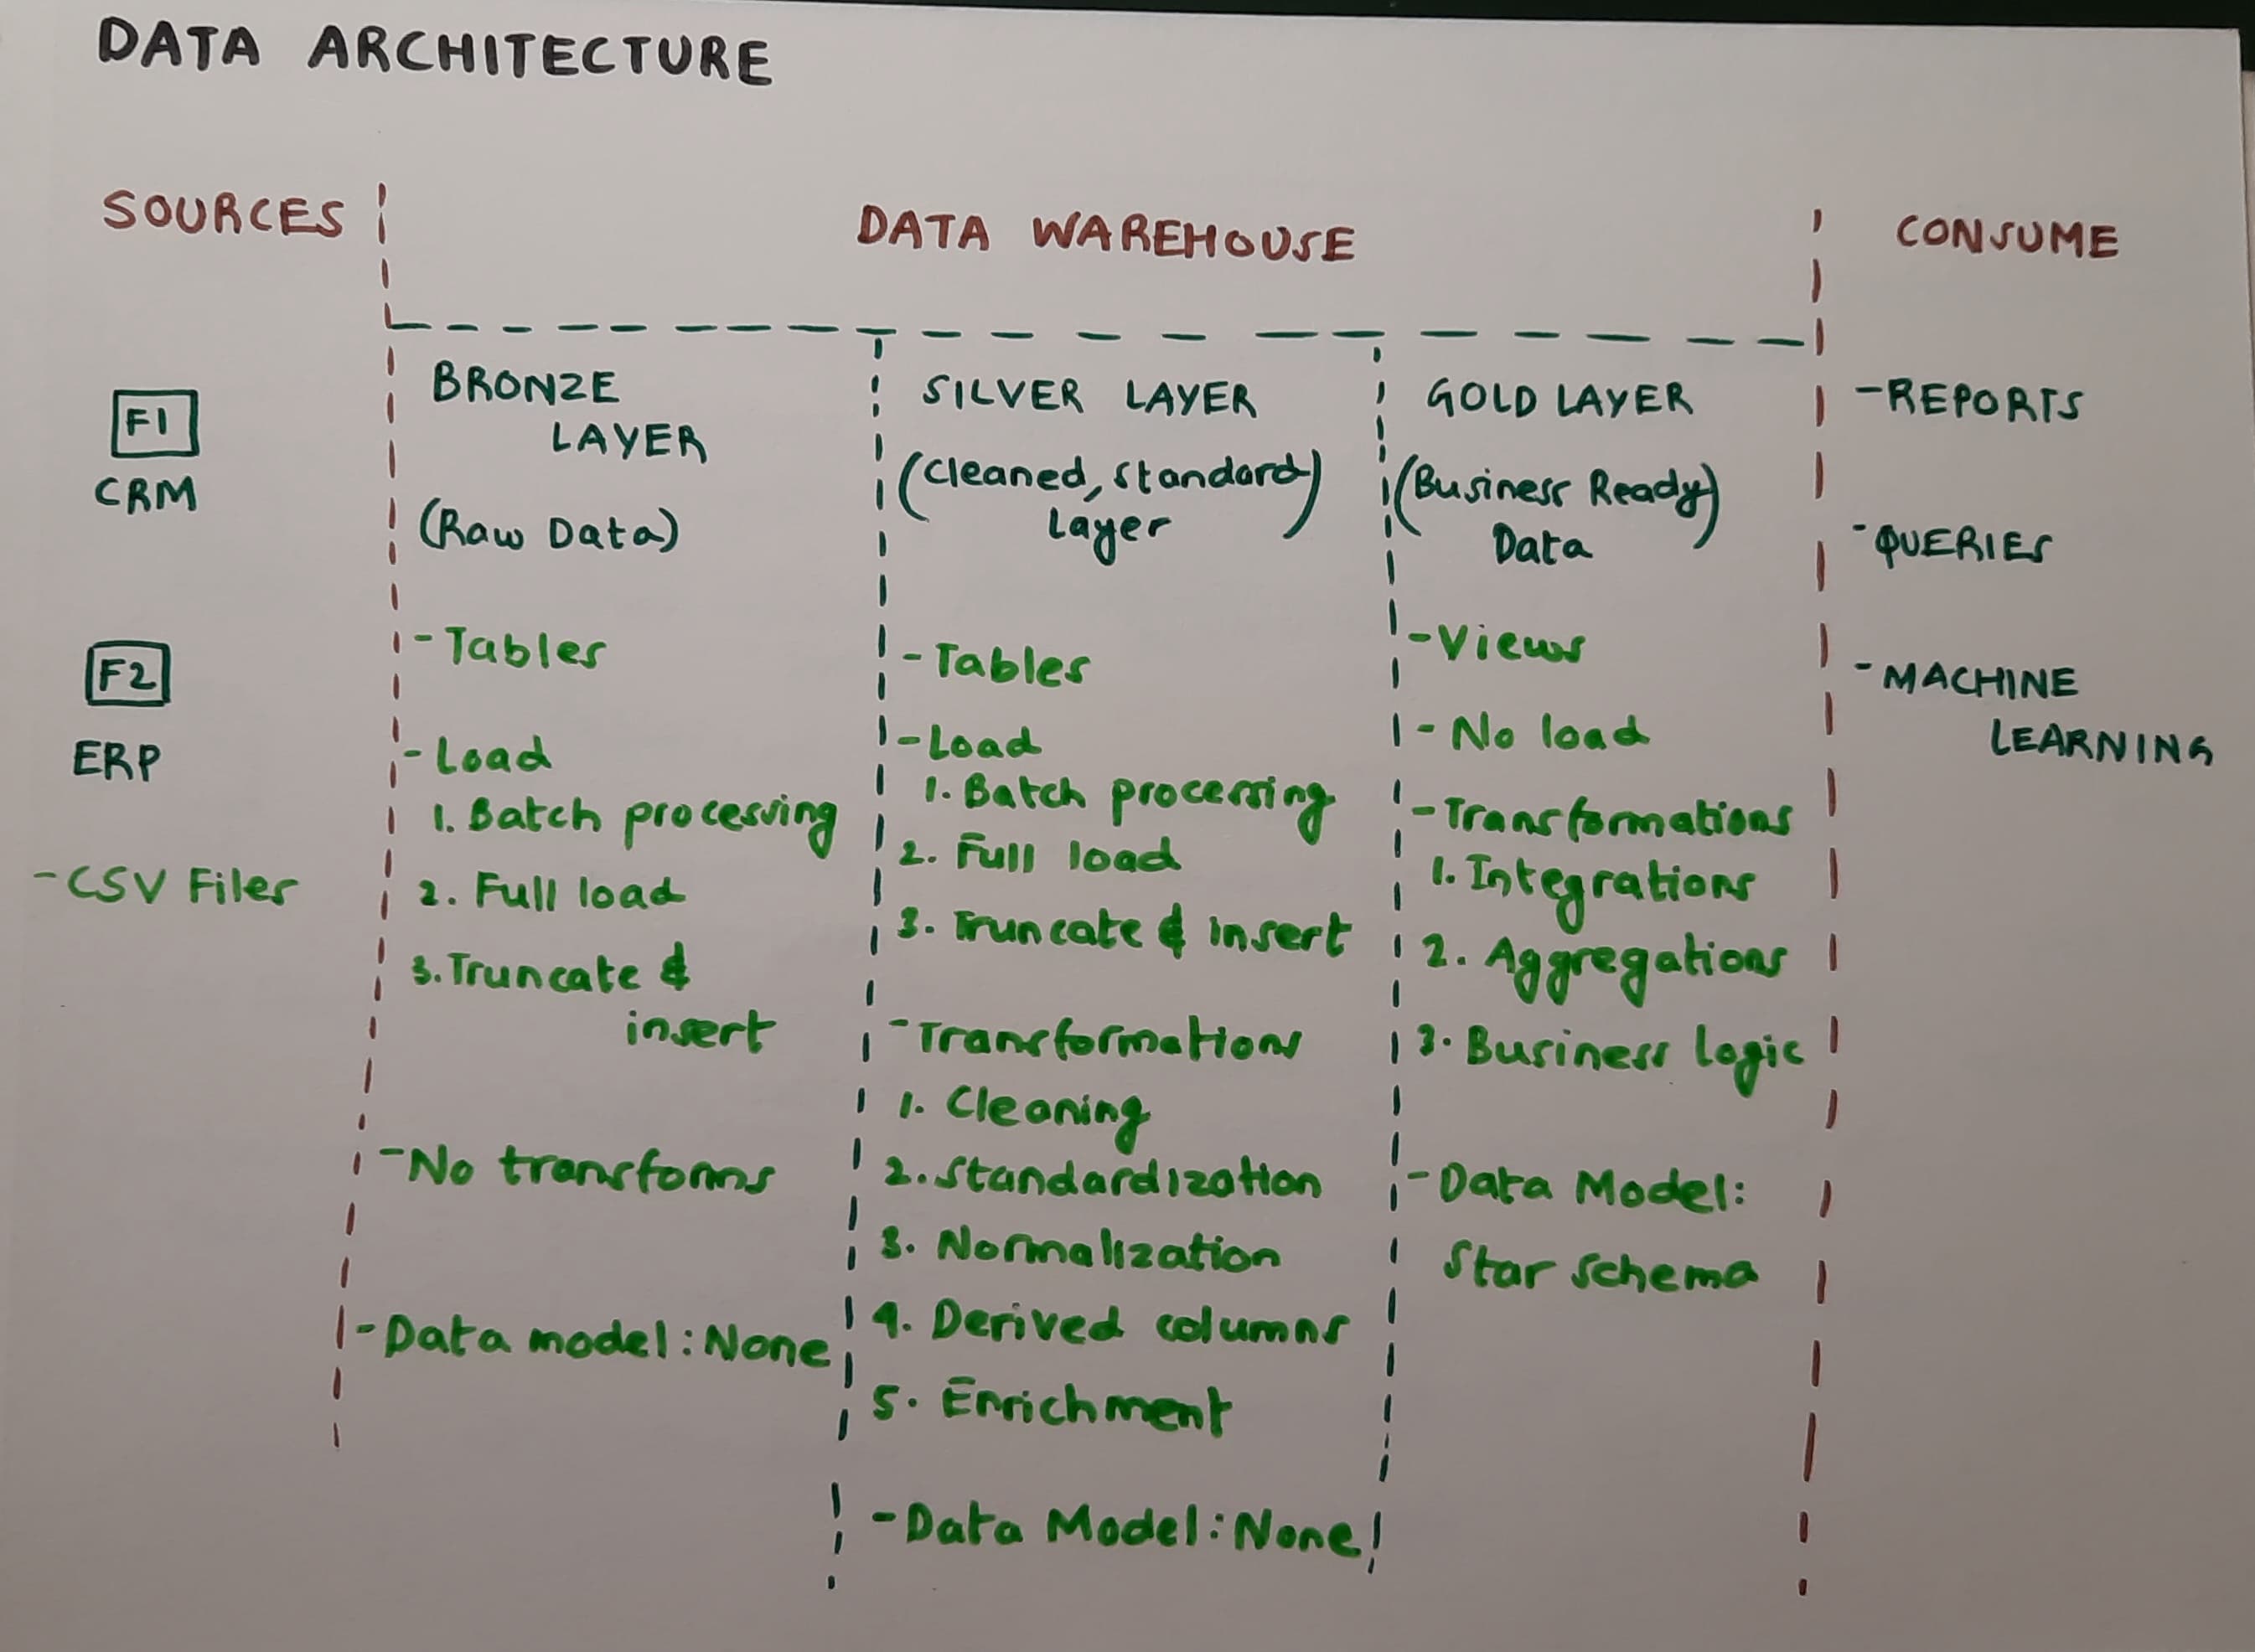 DATA ARCHITECTURE
SOURCES
F1
CRM
F2
ERP
- CSV Files
DATA WAREHOUSE
BRONZE
LAYER
(Raw Data)
- Tables
- Load
1. Batch processing
2. Full load
3. Truncate &
insert
- No transforms
- Data model: None
SILVER LAYER
(Cleaned, standard
Layer)
- Tables
- Load
1. Batch processing
2. Full load
3. Truncate & insert
- Transformations
1. Cleaning
2. Standardization
3. Normalization
4. Derived columns
5. Enrichment
- Data Model: None
GOLD LAYER
(Business Ready
Data)
- Views
- No load
- Transformations
1. Integrations
2. Aggregations
3. Business logic
- Data Model:
Star schema
CONSUME
- REPORTS
- QUERIES
- MACHINE
LEARNING